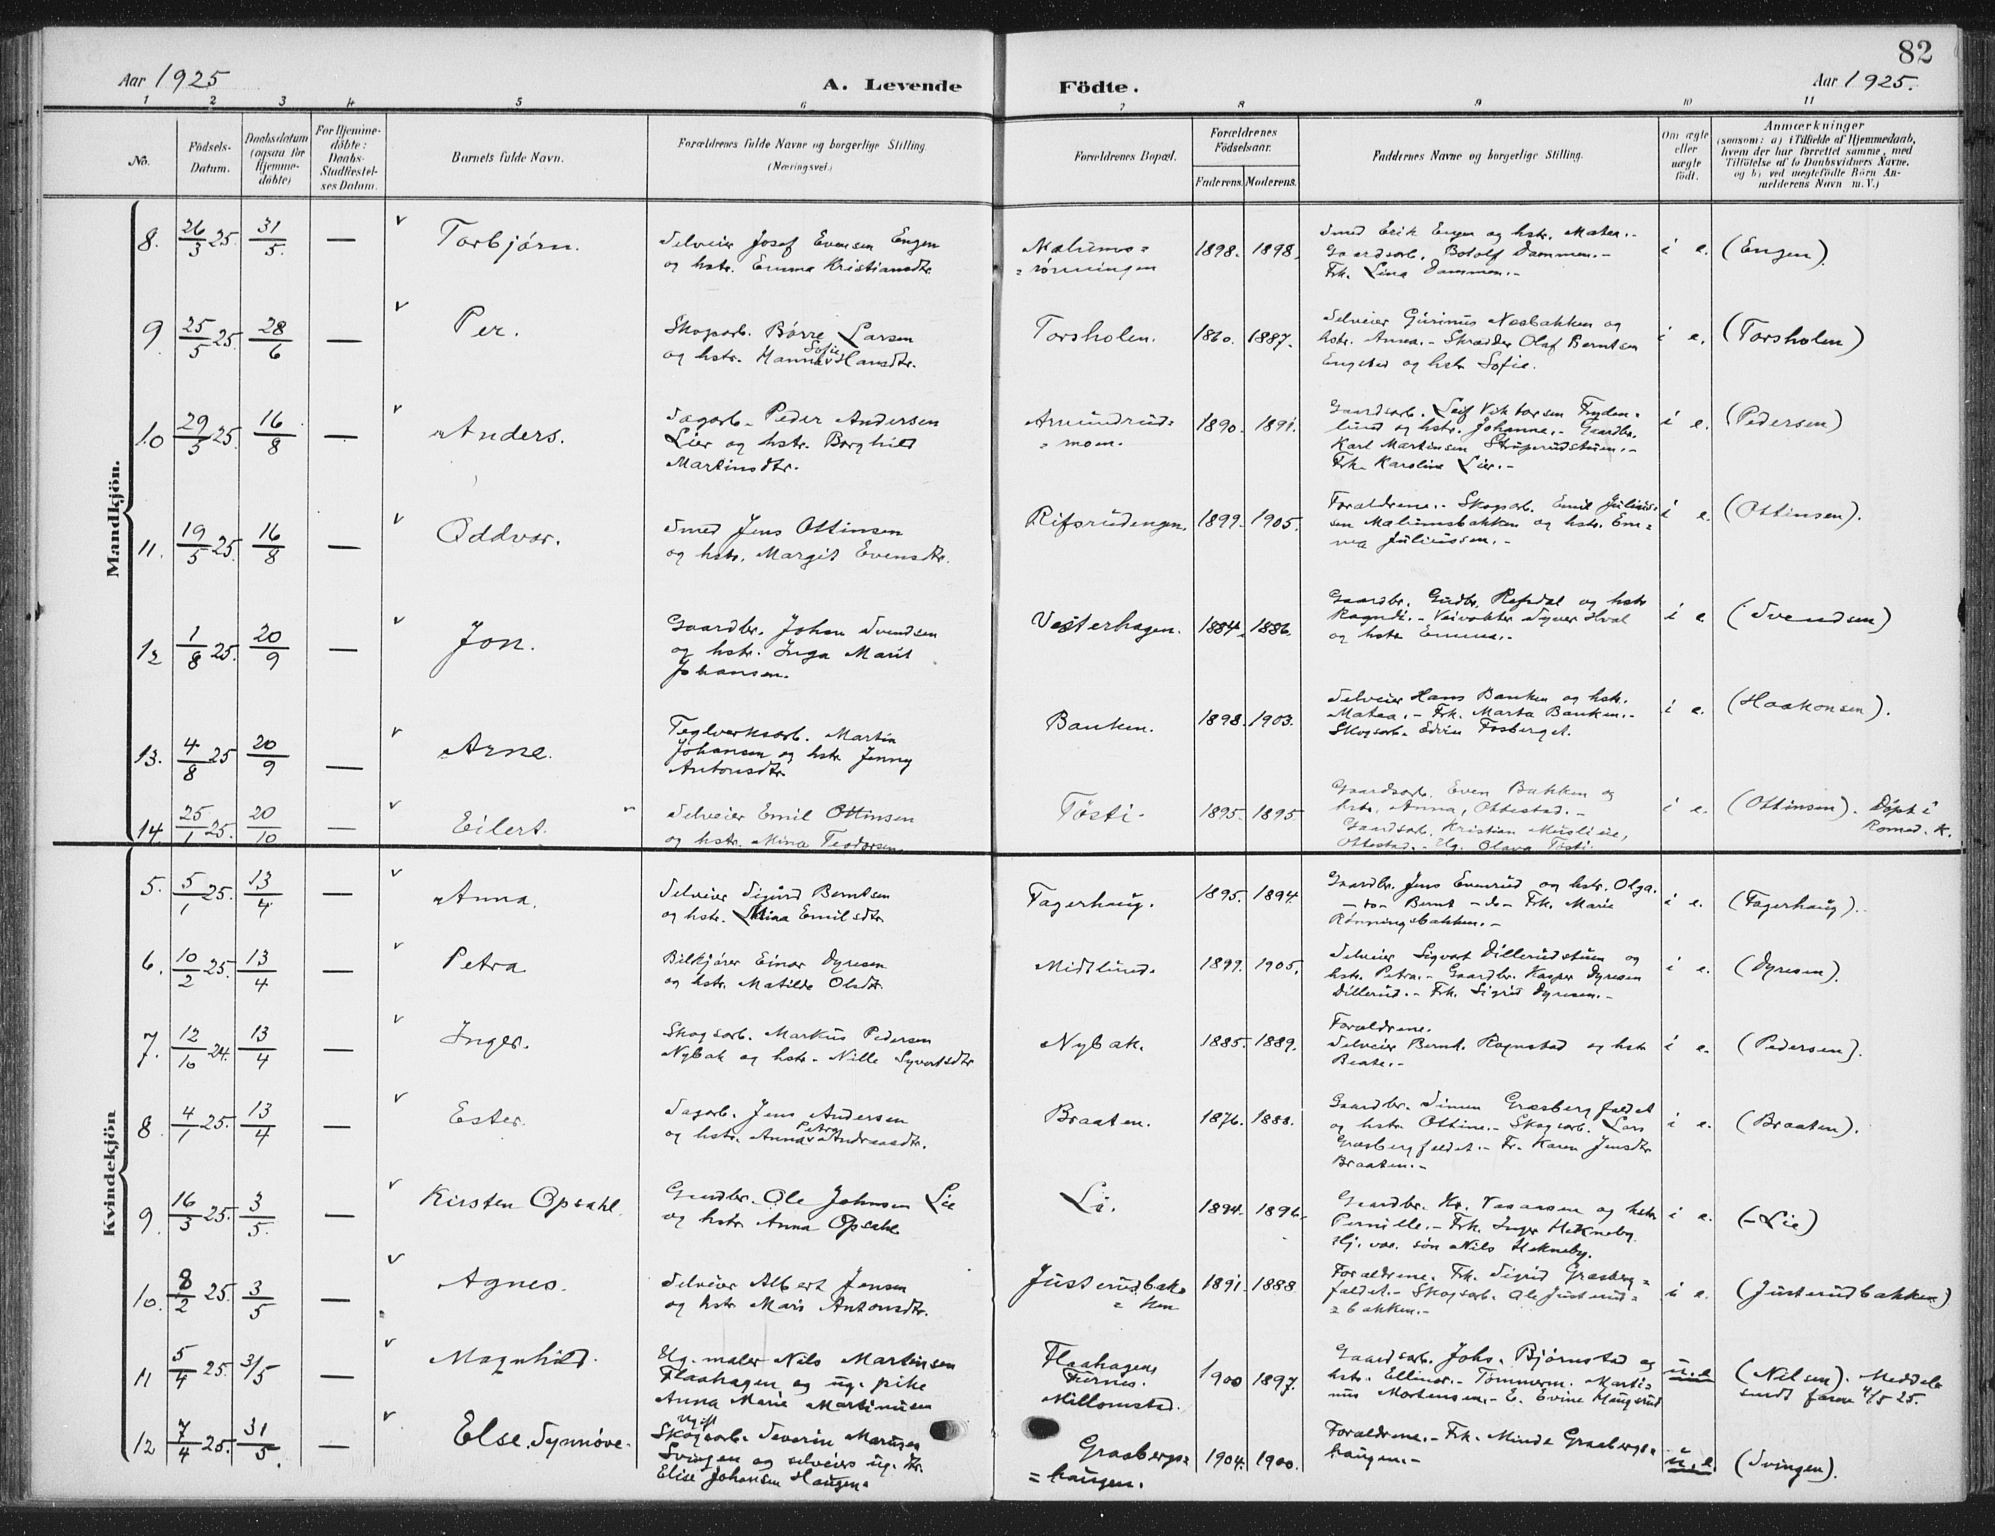 82
Aar 1925
A. Levende
Födte.
Aar 1925.
1 2 3 4 5 6 7 8 9 10 11
No.
Födsels-
Datum.
Daabsdatum
(ogsaa for
Hjemme-
döbte)
For Hjemme-
döbte:
Daabs-
Stadfæstel-
ses Datum.
Barnets fulde Navn.
Forældrenes fulde Navne og borgerlige Stilling
(Næringsvei.)
Forældrenes Bopæl.
Forældrenes
Födselsaar.
Faderens. Moderens.
Faddernes Navne og borgerlige Stilling.
Om ægte
eller
uægte
födt.
Anmærkninger
(saasom: a) i Tilfælde af Hjemmedaab,
hvem der har forrettet samme, med
Tilföielse af to Daabsvidners Navne.
og b) ved uægtefödte Börn An-
melderens Navn m. V.)
Mandkjön.
8. 26/3 25. 31/5. — Torbjørn.
Selveier Josef Evensen Engen
og hstr. Emma Kristiansdtr
Mælums=
=rønningen
1898. 1898.
Smed Erik Engen og hstr. Matea.-
Gaardsarb. Botolf Dammen.-
Frk. Lina Dammen.-
i e. (Engen).
9. 25/5 25. 28/6 — Per.
Skogsarb. Børre Larsen
og hstr. Hanna Sofie Hansdtr.
Torsholen.
1860. 1887.
Selveier Gurinus Næsbakken og
hstr. Anna.- Skrædder Olaf Berntsen
Engstad og hstr Sofie.
i e. (Torsholen)
10 29/3 25. 16/8 — Anders.
Sagarb. Peder Andersen
Lier og hstr. Borghild
Martinsdtr.
Amundrud=
=moen.
1890. 1891.
Gaardsarb. Leif Viktorsen Fryden=
lund og hstr. Johanne.- Gaardbr.
Karl Martinsen
Frk. Karoline Lier.-
i e. (Pedersen)
11. 19/5 25. 16/8 — Oddvar.
Smed Jens Ottinsen
og hstr. Margit Evensdtr.
Rifsrudengen.
1899. 1905.
Forældrene.- Skogsarb. Emil Julius=
sen Mælumsbakken og hstr. Em=
ma Juliussen.-
i e. (Ottinsen).
12 1/8 25. 20/9 — Jon.
Gaardbr. Johan Svendsen
og hstr. Inga Marit
Johansen.
Vesterhagen.
1884. 1886.
Gaardbr. Gudbr. Refsdal og hstr
Ragndi.- Veivokter Syver Hval
og hstr Emma.-
i e (Svendsen)
13. 4/8 25 20/9 — Arne.
Teglverksarb. Martin
Johansen og hstr Jenny
Antonsdtr
Banken.
1898. 1903.
Selveier Hans Banken og hstr.
Matea.- Frk. Marta Banken.-
Skogsarb. Edvin Fosberget.
i e. (Haakonsen).
14. 25/1 25. 20/10 — Eilert.
Selveier Emil Ottinsen
og hstr. Mina Teodorsen
Tösti.
1895. 1895
Gaardsarb. Even Bakken og
hstr. Anna, Ottestad.-
Gaardsarb. Kristian
Ottestad.- Ug. Olava Tösti.
i e. (Ottinsen). Döpt i
Romed. K.
Kvindekjön
5. 5/1 25. 13/4 — Anna.
Selveier Sigurd Berntsen
og hstr. Lina Emilsdtr
Fagerhaug.
1895. 1894
Gaardbr. Jens Evenrud og hstr. Olga.
-do- Bernt -do- Frk. Marie
Rønningsbakken.-
i e. (Fagerhaug).
6. 10/2 25. 13/4 — Petra
Bilkjører Einar Dyresen
og hstr. Matilde Olsdtr.
Midtlund.
1899. 1905.
Selveier Sigvart Dillerudstuen og
hstr. Petra.- Gaardbr. Kasper Dyresen
Dillerud.- Frk. Sigrid Dyresen.-
i e. (Dyresen).
7. 12/10 24. 13/4 — Inger.
Skogsarb. Markus Pedersen
Nybak og hstr. Nille Syvertsdtr
Nybak.
1885. 1889.
Forældrene.
Selveier Bernt. Rognstad og hstr
Beate.-
i e. (Pedersen).
8. 4/1 25. 13/4 — Ester.
Sagarb. Jens Andersen
og hstr. Anna Petra Andreasdtr.
Braaten.
1876. 1888.
Gaardbr. Simen Græsbergfeldet
og hstr Ottine.- Skogsarb. Lars
Græsbergfeldet.- Fr. Karen Jensdtr
Braaten.-
i e. (Braaten).
9. 16/3 25. 3/5. — Kirsten Opsahl.
Gaardbr. Ole Johnsen Lie
og hstr Anna Opsahl
Li.
1894. 1896.
Gaardbr. Kr. Vasaasen og hstr
Pernille.- Frk. Inger Hekneby.
Hj. vær. søn Nils Hekneby.
i e. (-Lie)
10. 8/2 25. 3/5 — Agnes.
Selveier Albert Jensen
og hstr Mari Antonsdtr.
Justerudbak=
= ken
1891. 1888
Forældrene. Frk. Sigrid Græsberg=
feldet.- Skogsarb. Ole Justerud=
=bakken.-
i e. (Justerudbakken)
11 5/4 25. 3/5 — Magnhild.
Ug. maler Nils Martinsen
Flaahagen og ug. pike
Anna Marie Martinusen
Flaahagen
Furnes.
Millomstad.
1900 1897.
Gaardsarb. Johs. Bjørnstad og
hstr. Ellinor.- Tømmerm. Marti=
nus Mortensen.- E. Evine Haugsrud
u.e (Nilsen). Meddelt
smdt faren 4/5 25.
12 7/4 25. 31/5. — Else Synnøve.
Ugift
Skogsarb. Severin
Svingen og selveiers ug. dtr.
Elise Johansen Haugen.
Graabergs=
=haugen.
1904. 1900.
Forældrene.- Frk. Minda Graabergs=
haugen.-
u.e. (Svingen).